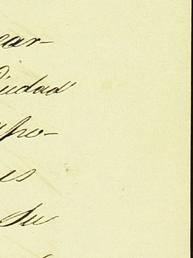 car-
Ciudad
po-
es
su